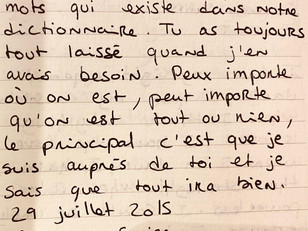 mots qui existe dans notre
dictionnaire. Tu as toujours
tout laissé quand j'en
avais besoin. Peux importe
où on est, peut importe
qu'on est tout ou rien,
le principal c'est que je
suis auprès de toi et je
sais que tout ira bien.
29 juillet 2015